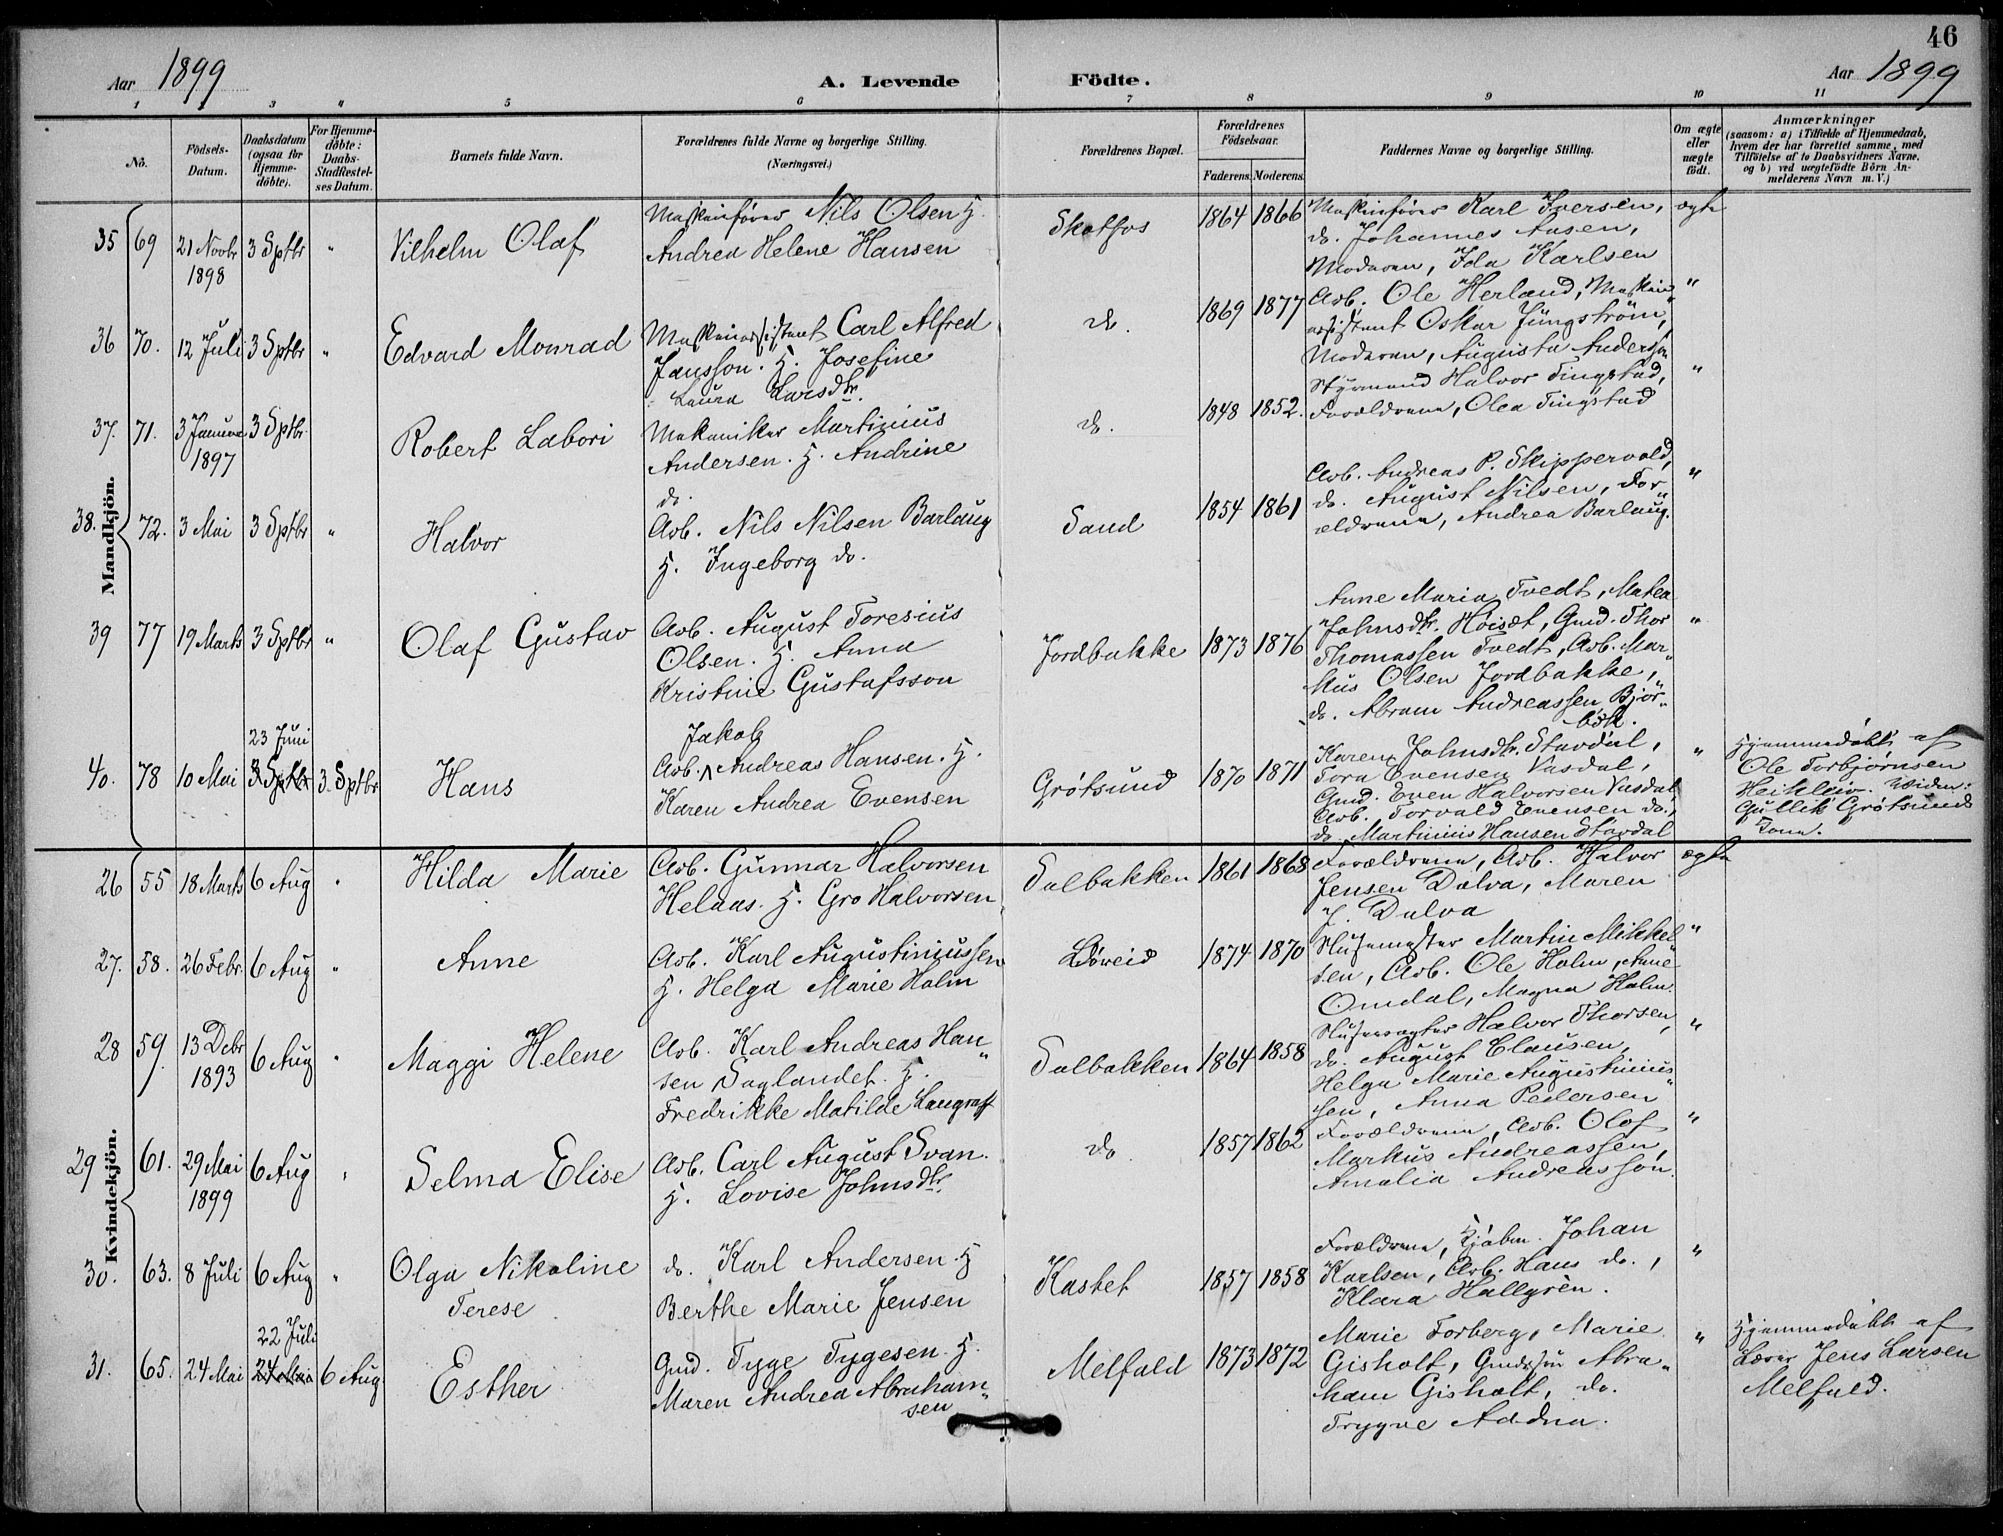 46
Aar 1899
A. Levende Födte.
Aar 1899
1 2 3 4 5 6 7 8 9 10 11
No.
Födsels-Datum.
Daabsdatum (ogsaa for Hjemme-döbte).
For Hjemme-döbte: Daabs-Stadfæstel-ses Datum.
Barnets fulde Navn.
Forældrenes fulde Navne og borgerlige Stilling.
(Næringsvei.)
Forældrenes Bopæl.
Forældrenes Födselsaar.
Faderens. Moderens.
Faddernes Navne og borgerlige Stilling.
Om ægte eller uægte födt.
Anmærkninger
(saasom: a) i Tilfælde af Hjemmedaab,
hvem der har forrettet samme, med
Tilföielse af to Daabsvidners Navne,
og b) ved uægtefödte Börn An-
melderens Navn m. V.)
Mandkjön.
35 69 21 Novbr 1898 3 Sptbr " Vilhelm Olaf
Maskinfører Nils Olsen H.
Andrea Helene Hansen
Skotfos 1864 1866
Maskinfører Karl Iversen,
do. Johannes Aasen,
Moderen, Ida Karlsen
ægte
36 70. 12 Juli 3 Sptbr " Edvard Monrad
Maskinassistent Carl Alfred
Jansson. H. Josefine
Laura Larsdtr.
do. 1869 1877
Arb. Ole Herland, Maskin
assistent Oskar Jüngström,
Moderen, Augusta Andersson
"
37. 71. 3 Januar 1897 3 Sptbr. Robert Labori
Mekaniker Martinius
Andersen. H. Andrine
do.
do. 1848 1852.
Styrmand Halvor Tingstad,
Forældrene, Olea Tingstad
"
38. 72. 3 Mai 3 Sptbr " Halvor
Arb. Nils Nilsen Barlaug
H. Ingeborg do.
Sand 1854 1861
Arb. Andreas P. Skippervold,
do. August Nilsen, For„
ældrene, Andrea Barlaug.
"
39 77 19 Marts 3 Sptbr " Olaf Gustav
Arb. August Toresius
Olsen. H. Anna
Kristine Gustafsson
Jordbakke 1873 1876
Anne Maria Tvedt, Matea
Johnsdtr. Høisæt, Gmd. Thor
Thomassen Tvedt, Arb. Mar„
kus Olsen Jordbakke,
do. Abram Andreassen Bjor„
bæk.
"
40. 78 10 Mai 23 Juni 3 Sptbr 3 Sptbr Hans
Jakob
Arb. Andreas Hansen. H.
Karen Andrea Evensen
Grøtsund 1870 1871
Karen Johnsdtr. Stavdal,
Tora Evensen Vasdal,
Gmd. Even Halvorsen Vasdal,
Arb. Torvald Evensen do.,
do. Martinius Hansen Stavdal
"
Hjemmedøbt af
Ole Torbjørnsen
Heiklev. Widne:
Gullik Grøtsund
Kvindekjön.
26 55 18 Marts 6 Aug " Hilda Marie
Arb. Gunnar Halvorsen
Helaas. H. Gro Halvorsen
Solbakken 1861 1868
Forældrene, Arb. Halvor
Jensen Dalva, Maren
J. Dalva
ægte
27. 58. 26 Febr. 6 Aug " Anne
Arb. Karl Augustiniussen
H. Helga Marie Holm
Løveid 1874 1870
Slusemester Martin Mikkel
sen, Arb. Ole Holm, Anne
Omdal, Magna Holm.
"
28 59. 13 Debr 1893 6 Aug " Maggi Helene
Arb. Karl Andreas Han„
sen Saglandet. H.
Fredrikke Matilde Langraff
Solbakken 1864 1858
Slusevogter Halvor Thorsen,
do. August Clausen,
Helga Marie Augustinius
sen, Anna Pedersen
"
29 61. 29 Mai 1899 6 Aug " Selma Elise
Arb. Carl August Svan.
H. Lovise Johnsdtr.
do 1857 1862
Forældrene, Arb. Olof
Markus Andreassen,
Amalia Andreasson.
"
30. 63. 8 Juli 6 Aug " Olga Nikoline
Terese
do. Karl Andersen. H
Berthe Marie Jensen
Kastet 1857 1858
Forældrene, Kjøbm. Johan
Karlsen, Arb. Hans do.,
Klara Hallgren.
"
31. 65. 24 Mai 22 Juli 24 Mai 6 Aug Esther
Gmd. Tyge Tygesen. H.
Maren Andrea Abraham„
sen
Melfald 1873 1872
Marie Forberg, Marie
Gisholt, Gmdssøn Abra„
ham Gisholt, do.
Trygve Addna.
"
Hjemmedøbt af
Lærer Jens Larsen
Melfald.